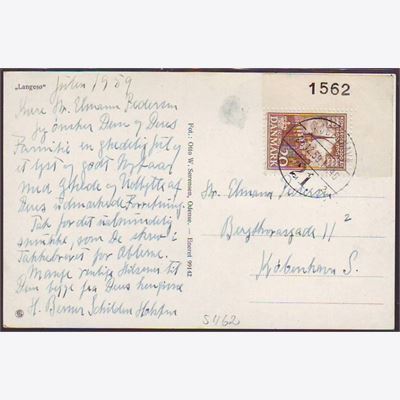 „Langesø"
Julen 1959
Kære Hr. Elmann Pedersen
Jeg ønsker Dem og Deres
Familie en glædelig Jul og
et lyst og godt Nytaar
med Glæde og Udbytte af
Deres udmærkede Forretning
Tak for det
smukke, som De skrev i
Takkebrevet for Æblerne.
Mange venlige Hilsener til
Dem begge fra Deres hengivne
H. Berner Schilden Holsten
Fot.: Otto W. Sørensen, Odense. — Eneret 99142
1562
DANMARK
Hr. Elmann Pedersen
Bergthorasgade 11²
København S.
S 462